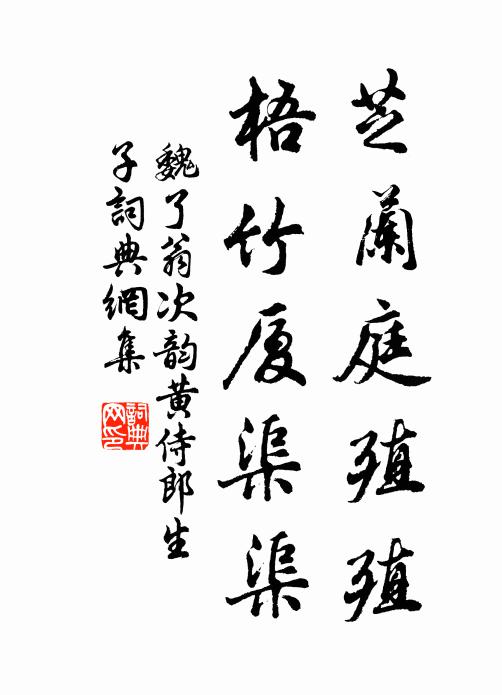 芝蘭庭殖殖
梧竹厦渠渠
魏了翁次韵黄侍郎生
子詞典網集
詞典
网印